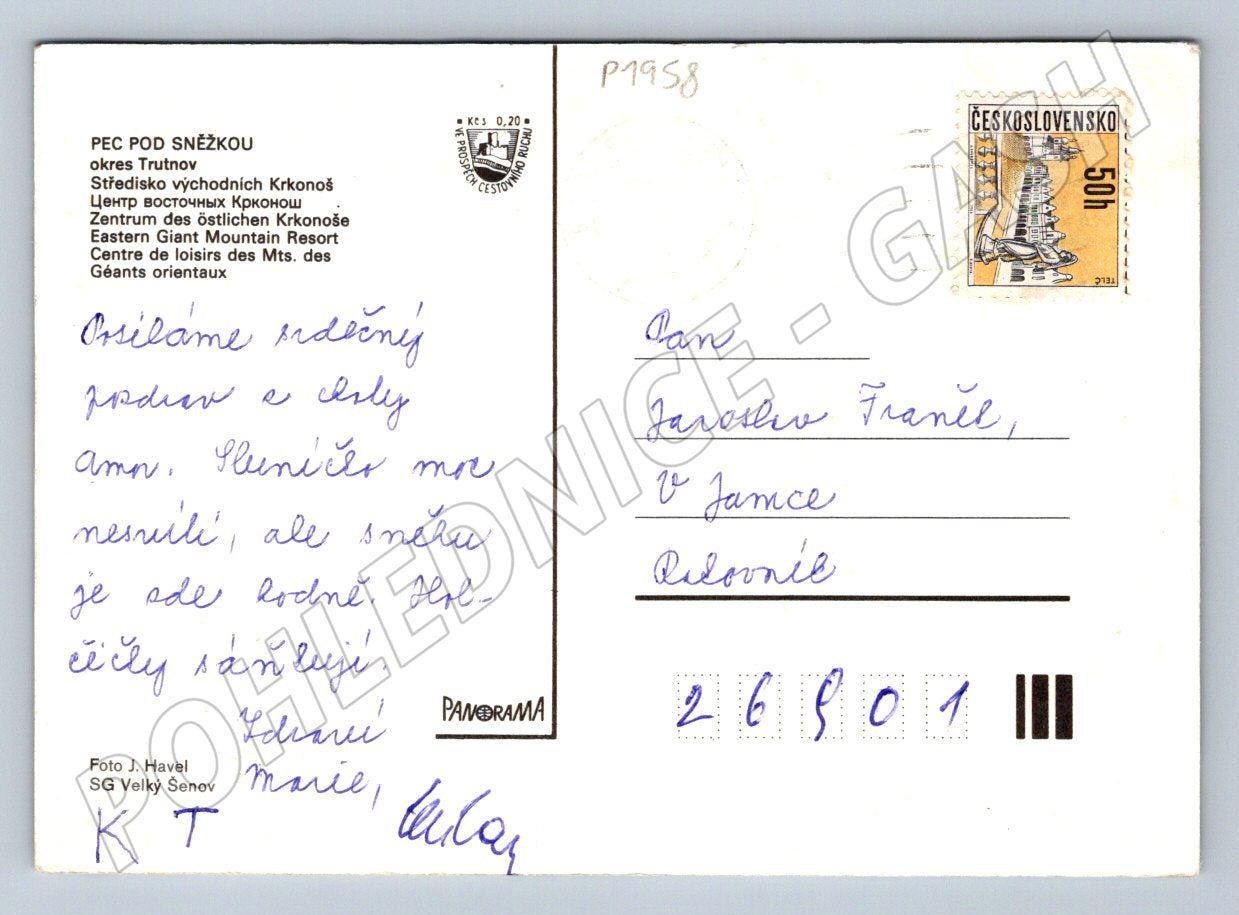 P1958
PEC POD SNĚŽKOU
okres Trutnov
Středisko východních Krkonoš
Центр восточных Крконош
Zentrum des östlichen Krkonoše
Eastern Giant Mountain Resort
Centre de loisirs des Mts. des
Géants orientaux
Kčs 0,20
VE PROSPĚCH CESTOVNÍHO RUCHU
ČESKOSLOVENSKO
50h
TELČ
Posíláme srdečný
pozdrav z chaty
Amor. Sluníčko moc
nesvítí, ale sněhu
je zde hodně. Hol-
čičky sáňkují.
Zdraví
Marie,
K T
PANORAMA
Foto J. Havel
SG Velký Šenov
Pan
Jaroslav Franěk,
V Jamce
Rakovník
26901
POHLEDNICE - GASH